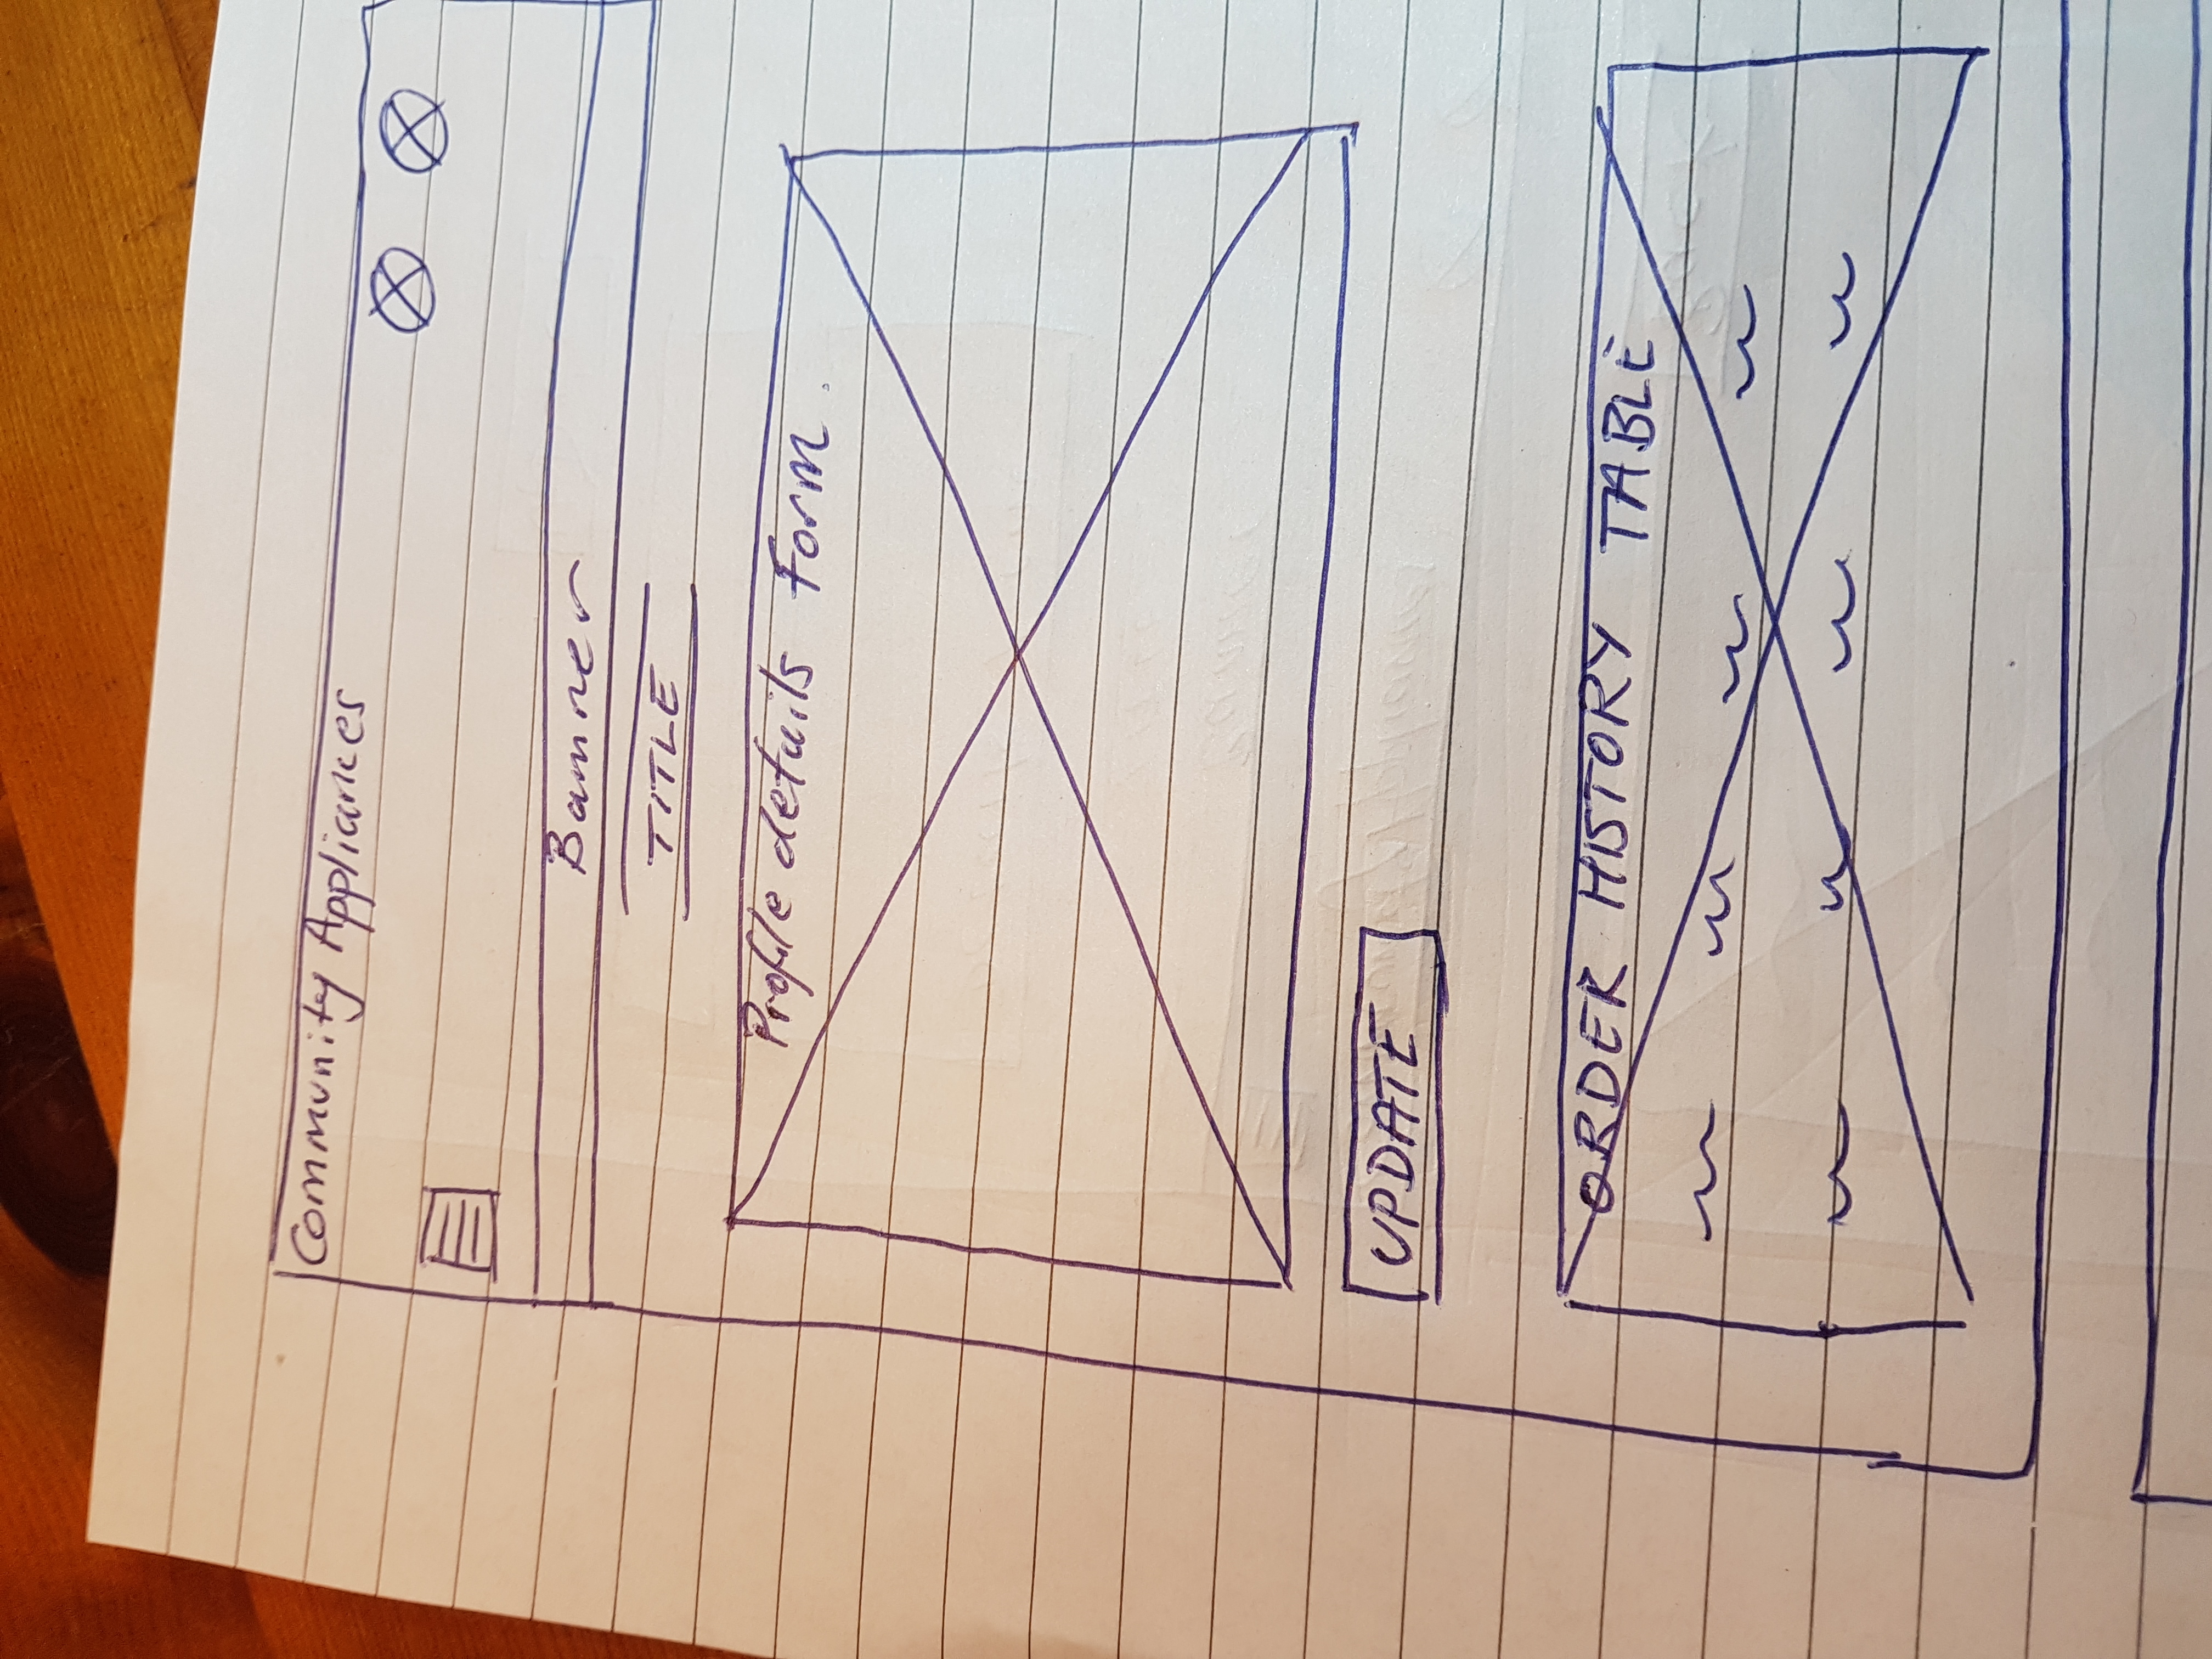 Community Appliances
Banner
TITLE
Profile details Form.
UPDATE
ORDER HISTORY TABLE